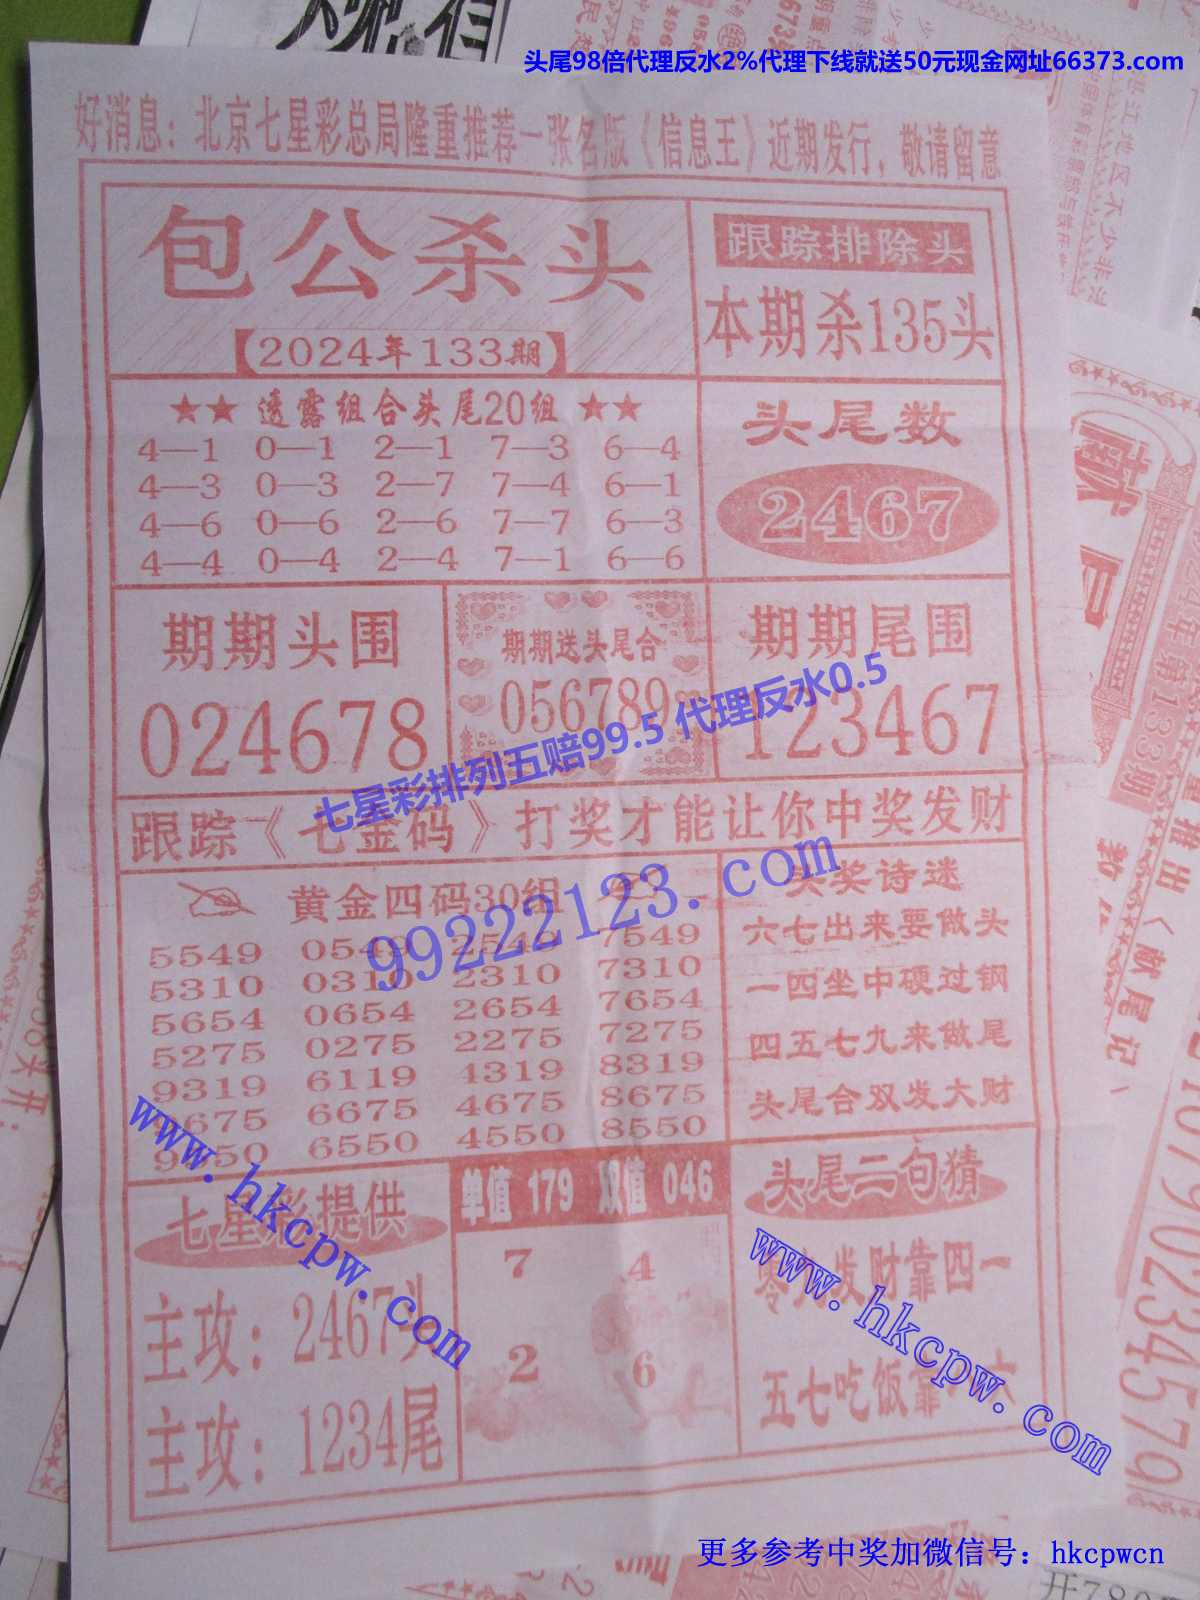 头尾98倍代理反水2%代理下线就送50元现金网址66373.com
好消息：北京七星彩总局隆重推荐一张名版《信息王》近期发行，敬请留意
包公杀头
【2024年133期】
跟踪排除头
本期杀135头
★★ 透露组合头尾20组 ★★
4—1 0—1 2—1 7—3 6—4
4—3 0—3 2—7 7—4 6—1
4—6 0—6 2—6 7—7 6—3
4—4 0—4 2—4 7—1 6—6
头尾数
2467
期期头围
024678
期期送头尾合
056789
期期尾围
123467
七星彩排列五赔99.5 代理反水0.5
跟踪《七金码》打奖才能让你中奖发财
99222123.com
黄金四码30组
5549 0549 2549 7549
5310 0310 2310 7310
5654 0654 2654 7654
5275 0275 2275 7275
9319 6119 4319 8319
9675 6675 4675 8675
9550 6550 4550 8550
头奖诗迷
六七出来要做头
一四坐中硬过钢
四五七九来做尾
头尾合双发大财
www.hkcpw.com
七星彩提供
主攻：2467头
主攻：1234尾
单值 179 双值 046
7 4
2 6
头尾二句猜
发财靠四一
五七吃饭靠
www.hkcpw.com
更多参考中奖加微信号：hkcpwcn
第133期
推出《献尾记